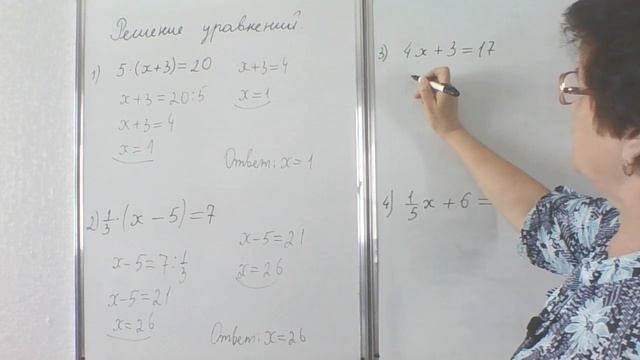 Решение уравнений.
1) 5·(x+3)=20
x+3=20:5
x+3=4
x=1
x+3=4
x=1
Ответ: x=1
2) 1/3·(x-5)=7
x-5=7:1/3
x-5=21
x=26
x-5=21
x=26
Ответ: x=26
3) 4x+3=17
4) 1/5x+6=